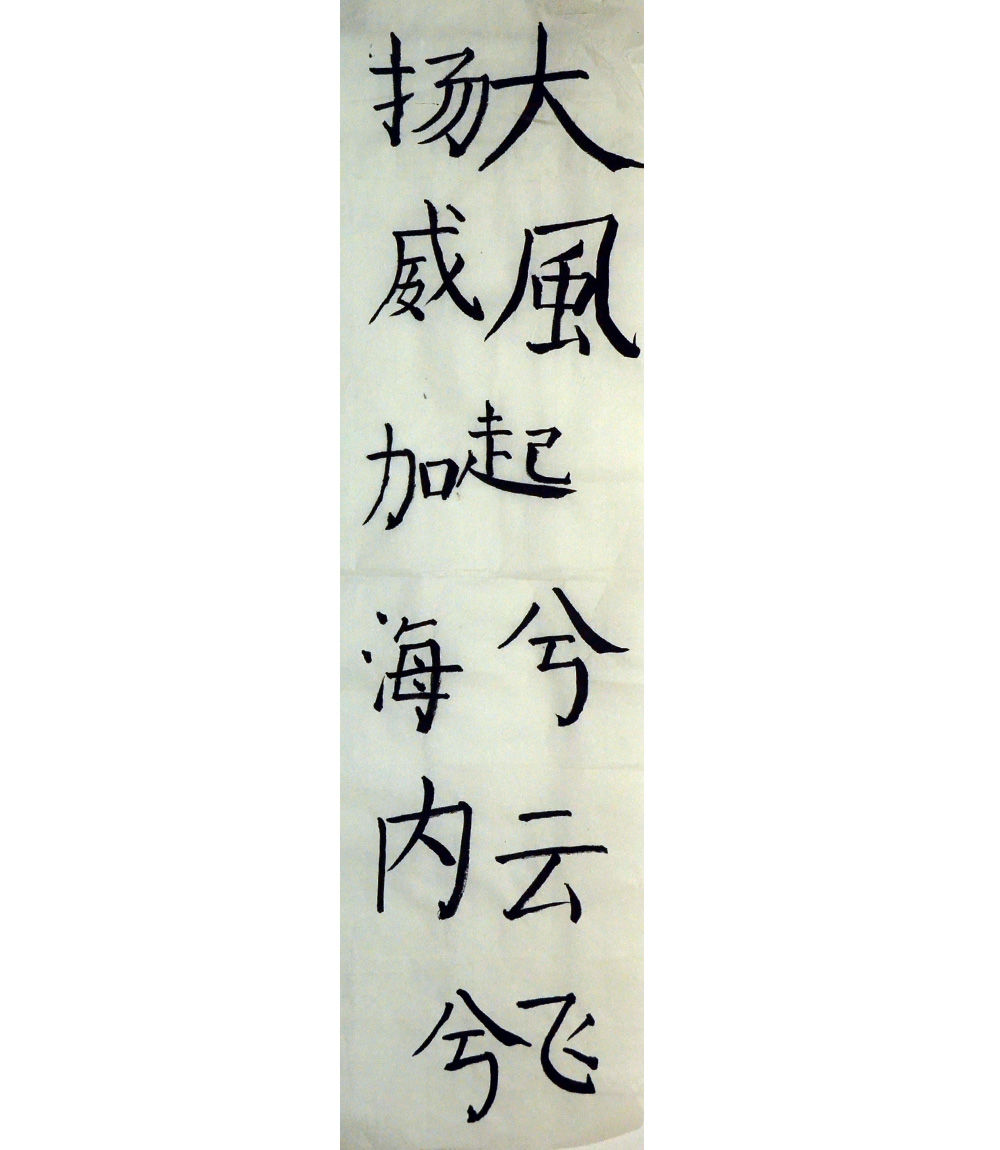 大風起兮云飞
扬威加海内兮